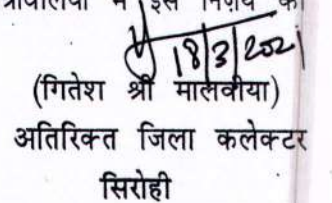 में इस निर्णय की
18/3/2021
(गितेश श्री मालवीया)
अतिरिक्त जिला कलेक्टर
सिरोही